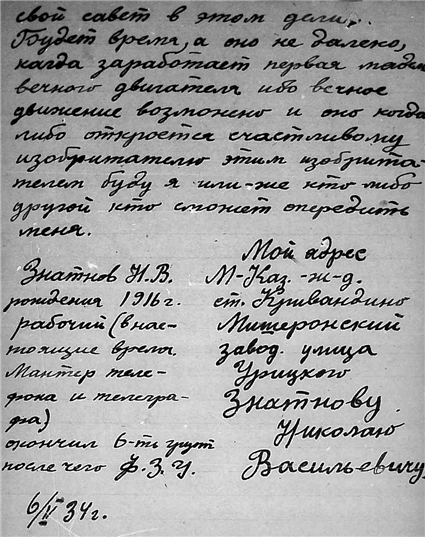 свой савет в этом дели...
Будет время, а оно не далеко,
кагда заработает первая
вечного двигателя ибо вечное
движение возможено и оно когда
либо откроется счастливому
изобритателю этим изобрита-
телем буду я или-же кто либо
другой кто сможет опередить
меня.
Знатнов Н.В.
рождения 1916 г.
рабочий (в нас-
тоящие время.
Мантер теле-
фона и телегра-
фа)
окончил 6-ть групп
после чего Ф.З.У.
6/V 34 г.
Мой адрес
М-Каз.-ж-д.
ст. Кривандино
Мишеронский
завод. улица
Урицкого
Знатнову
Николаю
Васильевичу